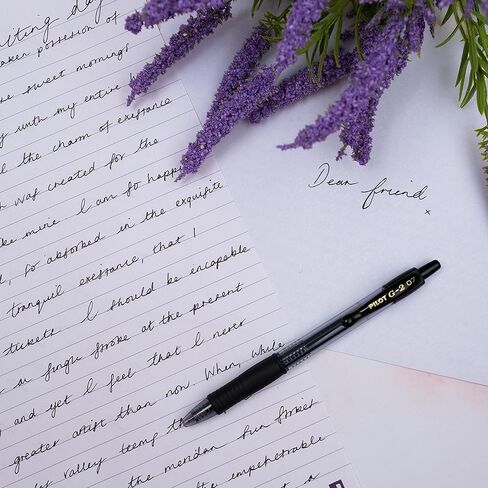 iting day
taken possession of
ese sweet mornings
y with my entire
l the charm of existance
h was created for the
ke mine. I am so happy
d, so absorbed in the exquisite
tranquil existance, that I
tickets. I should be incapable
a single stroke at the present
and yet I feel that I never
greater artist than now. When, while
valley teems
the meridian sun strikes
the impenetrable
a
Dear friend
x
PILOT G-2 07